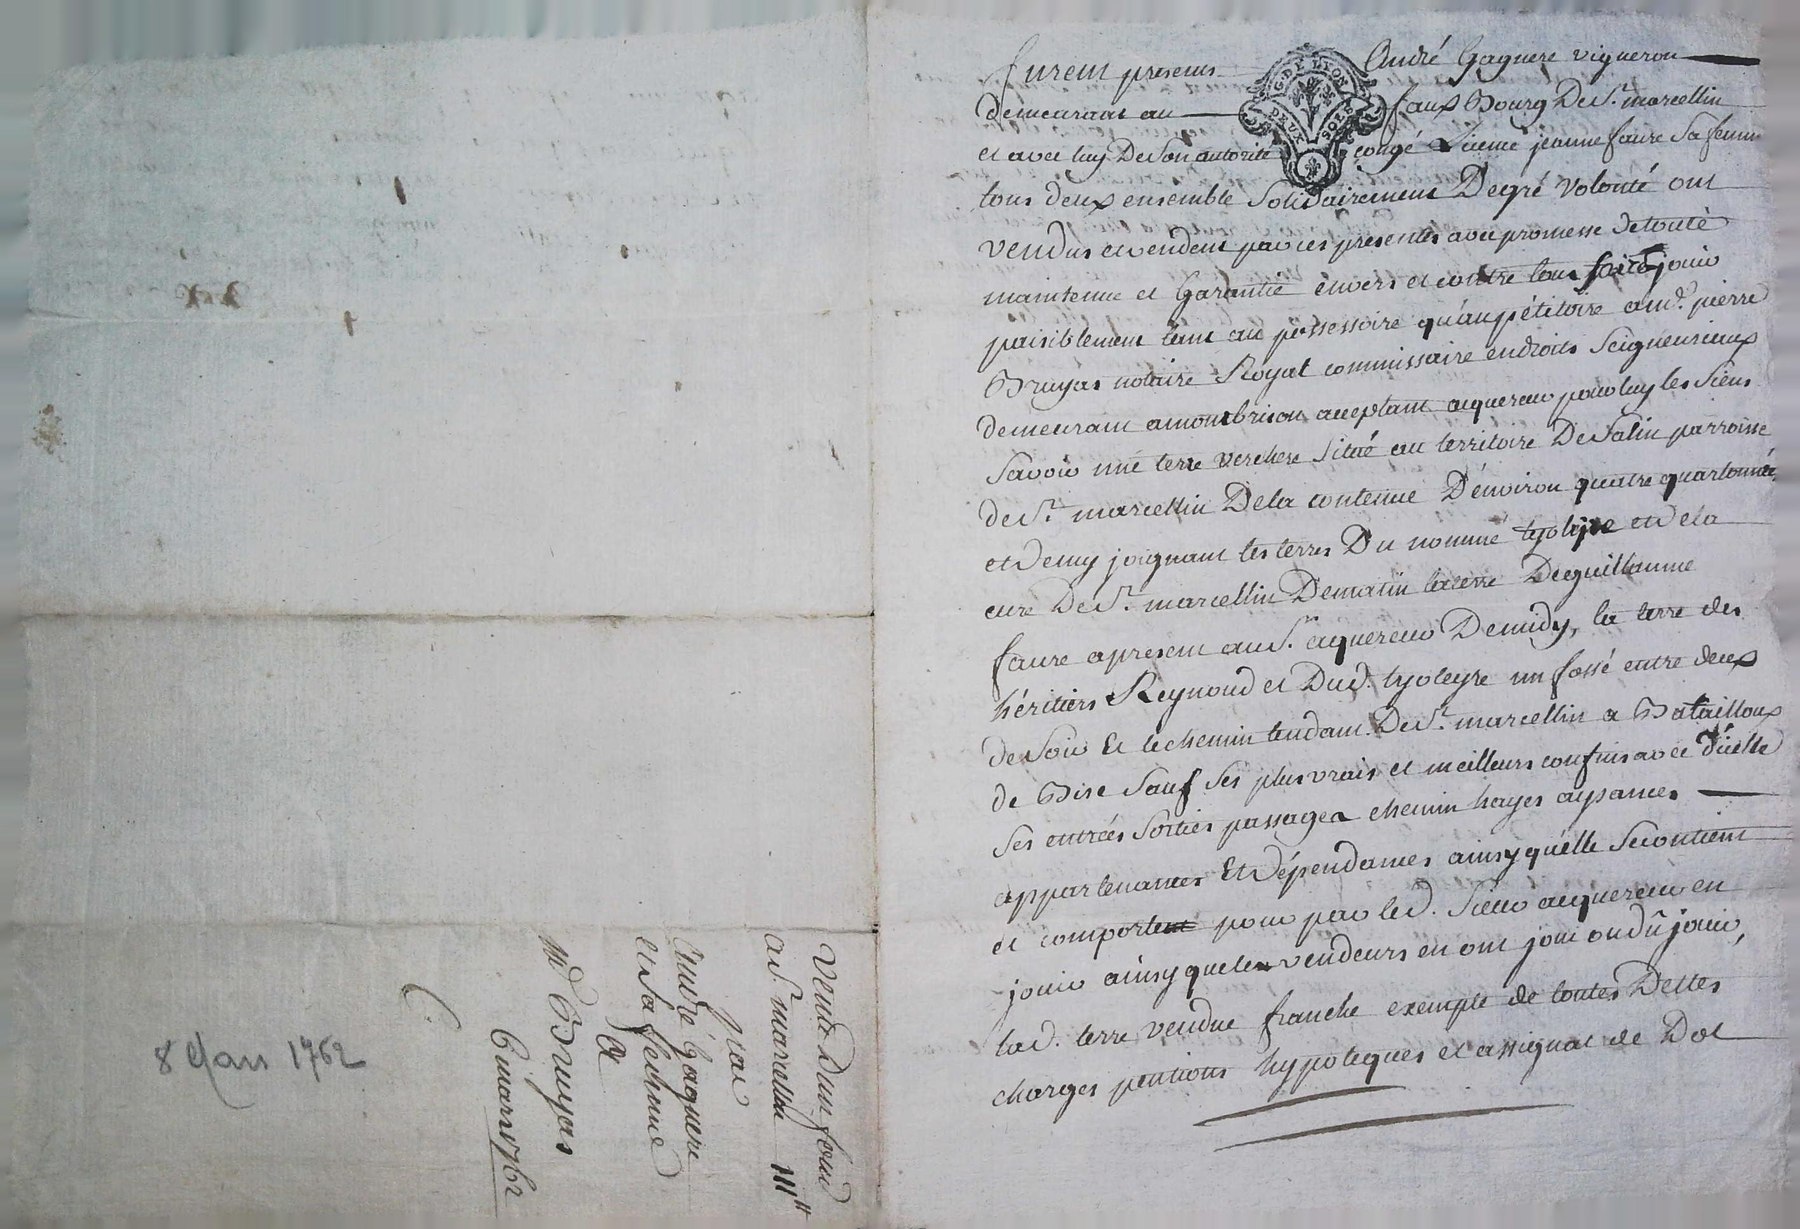 Furent presents André Gaguere vigneron
G. DE LYON
DEUX SOLS
demeurant au faux Bourg De St. marcellin
et avec luy De son autorité congé Licence jeanne faure Sa femme
tous deux ensemble Solidairement De gré volonté ont
vendus et vendent par ces presentes avec promesse de toute
maintenue et Garantie envers et contre tous faire jouir
paisiblement tant au possessoire qu'au pétitoire a me. pierre
Bruyas notaire Royal commissaire en droits Seigneuriaux
demeurant a montbrison acceptant aquereur pour luy les Siens
Savoir une terre verchere Située au territoire De Salin parroisse
de St. marcellin De la contenue D'environ quatre quartonnées
et Demy joignant les terres Du nommé lyoleyre et de la
cure De St. marcellin De matin la terre De guillaume
faure apresent au Sr. aquereur De midy, la terre des
héritiers Reynoud et Dud. lyoleyre un fossé entre deux
de Soir Et le chemin tendant De St. marcellin a Batailloux
de Bise Sauf Ses plus vrais et meilleurs confins avec d'icelle
Ses entrées Sorties passages chemin hayes aysances
appartenances Et Dépendances ainsy qu'elle Se contient
et comporte pour par led. Sieur aquereur en
jouir ainsy que les vendeurs en ont joui ou dû jouir,
lad. terre vendue franche exempte de toutes Dettes
charges pentions hypoteques et assignat de Dot
Vente D'un fond
a St. marcellin 111 tt
par
André Gaguere
et Sa femme
A
me Bruyas
6 mars 1762
8 Mars 1762